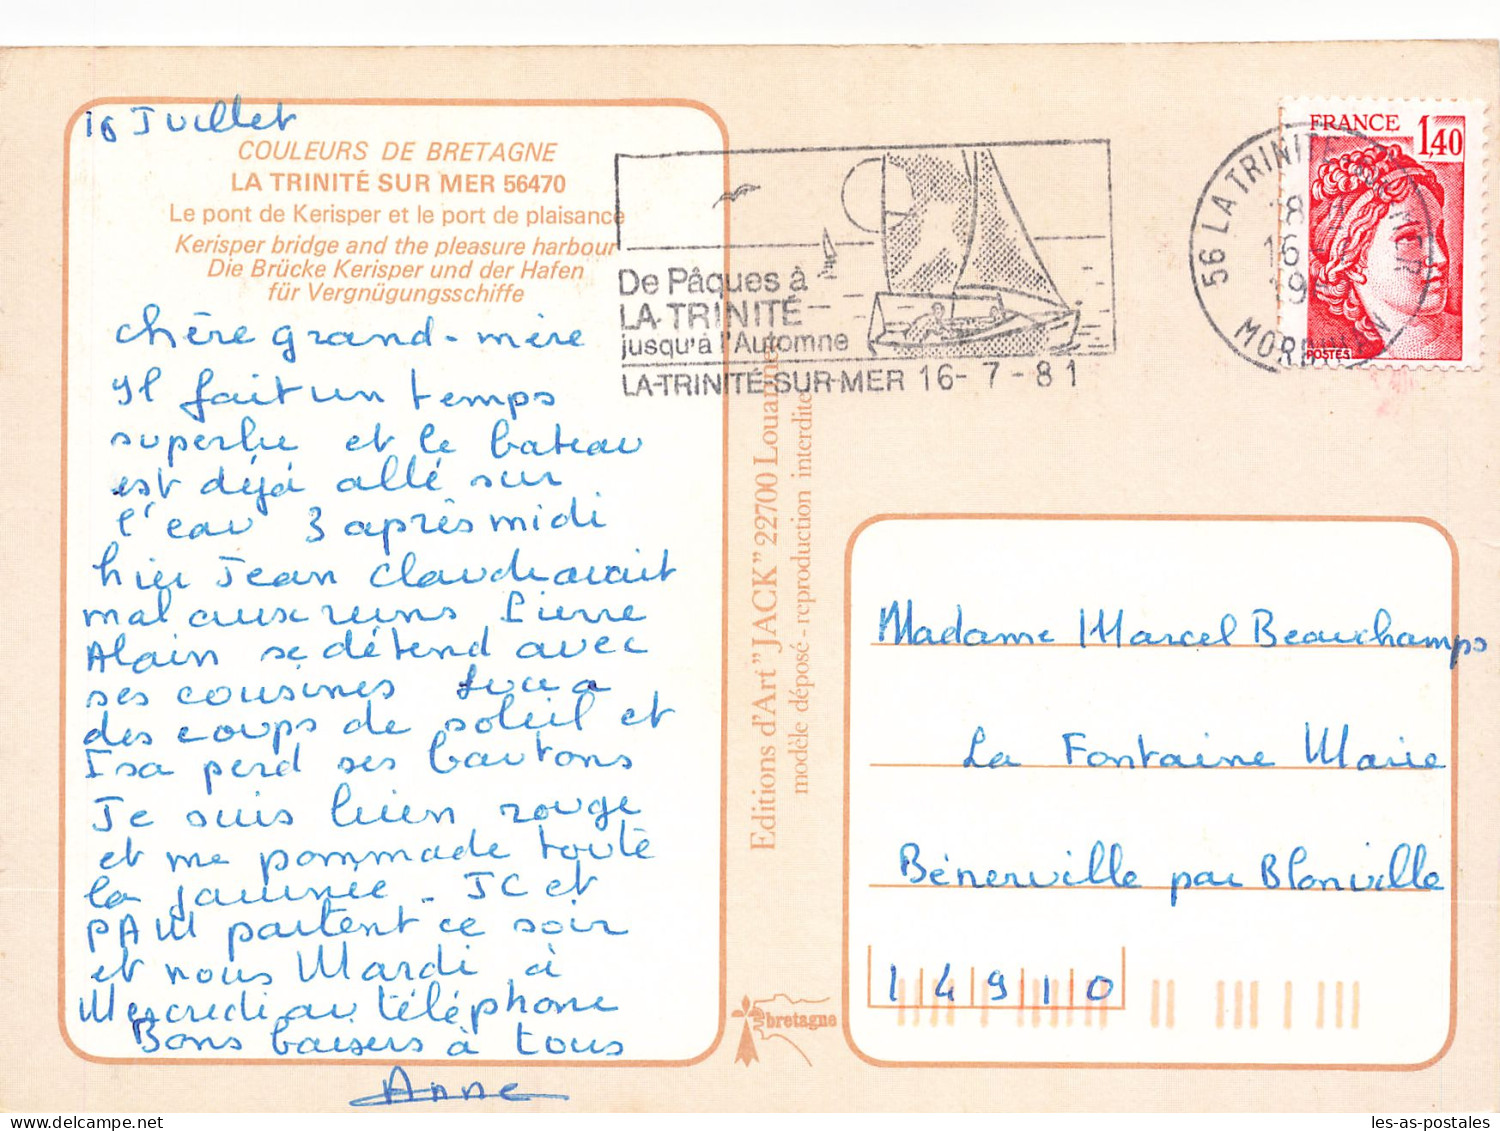 16 Juillet
COULEURS DE BRETAGNE
LA TRINITÉ SUR MER 56470
Le pont de Kerisper et le port de plaisance
Kerisper bridge and the pleasure harbour
Die Brücke Kerisper und der Hafen
für Vergnügungsschiffe
chère grand-mère
Il fait un temps
superbe et le bateau
est déjà allé sur
l'eau 3 après midi
hier Jean Claude avait
mal aux reins Pierre
Alain se détend avec
ses cousines
des coups de soleil et
Isa perd ses boutons
Je suis bien rouge
et me pommade toute
la journée - JC et
PAW partent ce soir
et nous Mardi à
Mercredi au téléphone
Bons baisers à tous
Anne
De Pâques à
LA TRINITÉ
jusqu'à l'Automne
LA-TRINITÉ-SUR-MER 16- 7 - 81
56 LA TRINITE SUR MER
18 H
16
19
MORBIHAN
FRANCE 1,40
POSTES
Editions d'Art "JACK" 22700 Louannec
modèle déposé - reproduction interdite
Madame Marcel Beauchamps
La Fontaine Marie
Bénerville par Blonville
14910
bretagne
les-as-postales